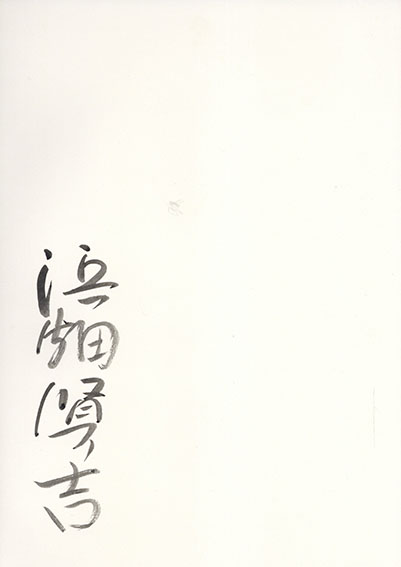 浜畑賢吉